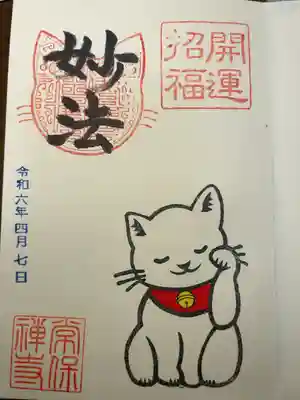 開運
招福
妙法
令和六年四月七日
常保
禅寺